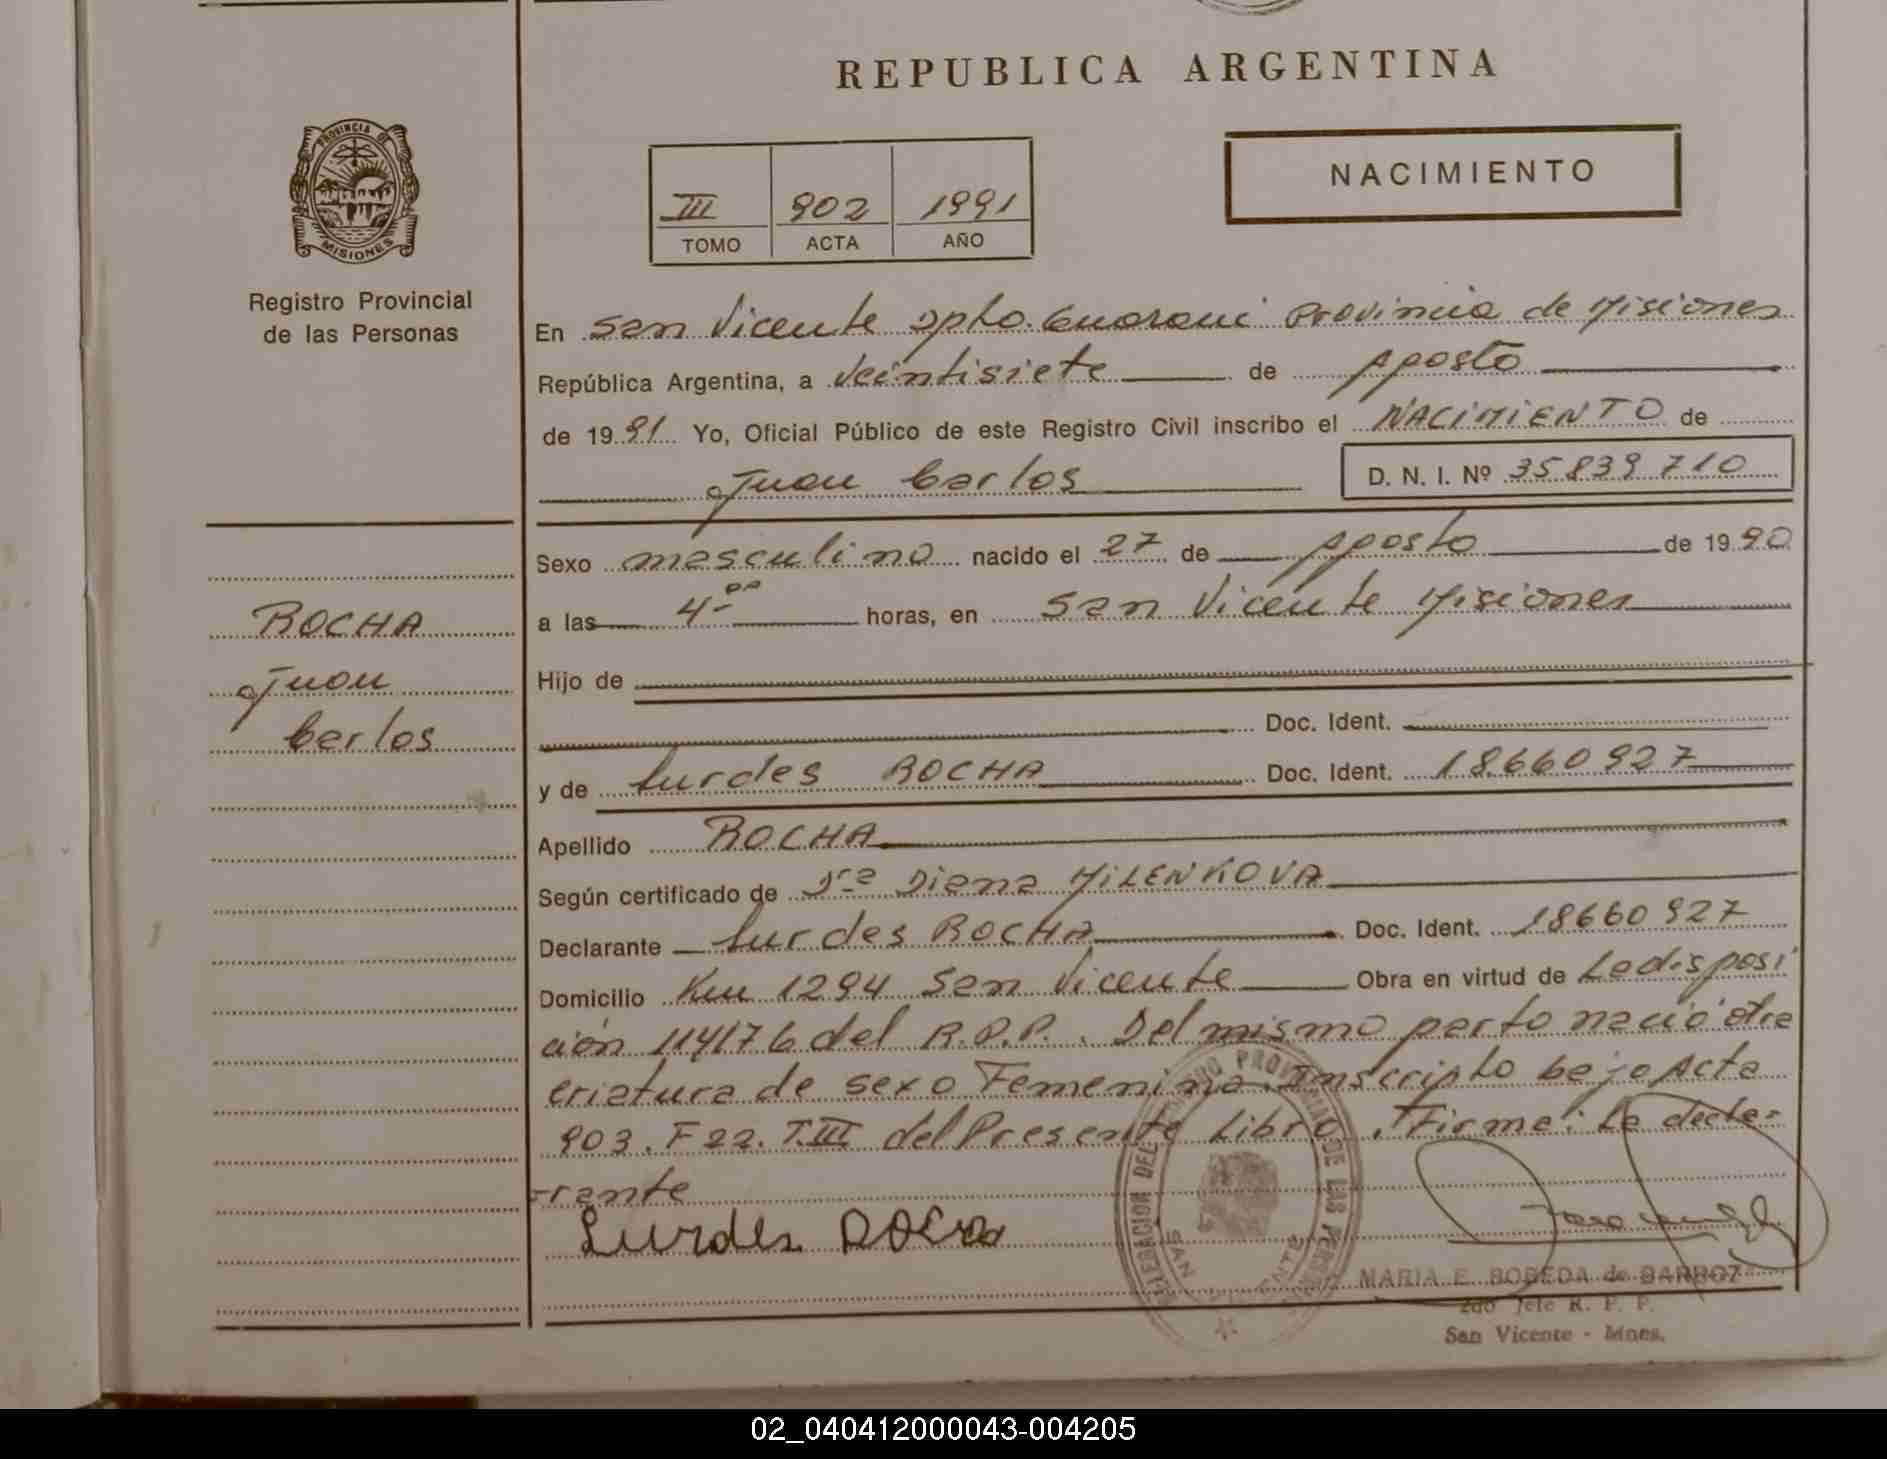 REPUBLICA ARGENTINA
PROVINCIA DE
MISIONES
Registro Provincial
de las Personas
NACIMIENTO
III 902 1991
TOMO ACTA AÑO
En San Vicente Dpto. Guarani Provincia de Misiones
República Argentina, a veintisiete de Agosto
de 1991 Yo, Oficial Público de este Registro Civil inscribo el NACIMIENTO de
Juan Carlos D. N. I. Nº 35839710
Sexo masculino nacido el 27 de Agosto de 1990
a las 4-00 horas, en San Vicente Misiones
ROCHA
Juan
Carlos
Hijo de
Doc. Ident.
y de Lurdes ROCHA Doc. Ident. 18660927
Apellido ROCHA
Según certificado de Dra Diana MILENKOVA
Declarante Lurdes ROCHA Doc. Ident. 18660927
Domicilio Km 1294 San Vicente Obra en virtud de La disposi
ción 114/76 del R.P.P. Del mismo parto nació otra
criatura de sexo Femenina Inscripto bajo Acta
903. F 22. T.III del Presente Libro. Firma: La decla-
-rante
Lurdes
MARIA E. BOBEDA de BARROZ
2do Jefe R. P. P.
San Vicente - Mnes.
02_040412000043-004205